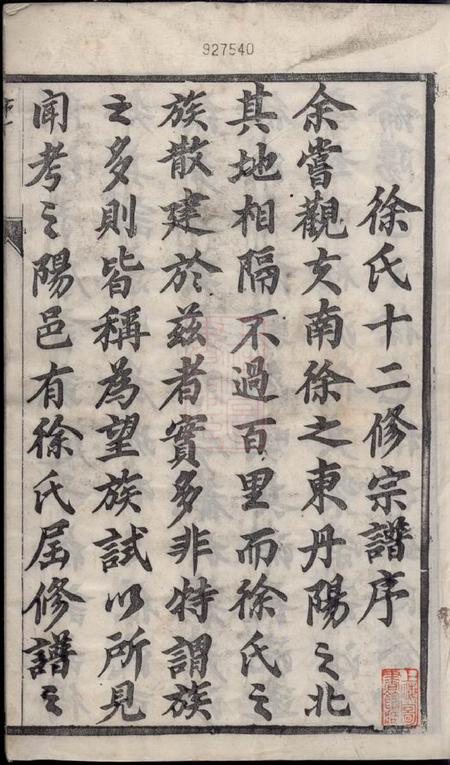 927540
徐氏十二修宗譜序
余嘗觀文南徐之東丹陽之北
其地相隔不過百里而徐氏之
族散建於茲者實多非特謂族
之多則皆稱為望族試以所見
聞考之陽邑有徐氏屆修譜之